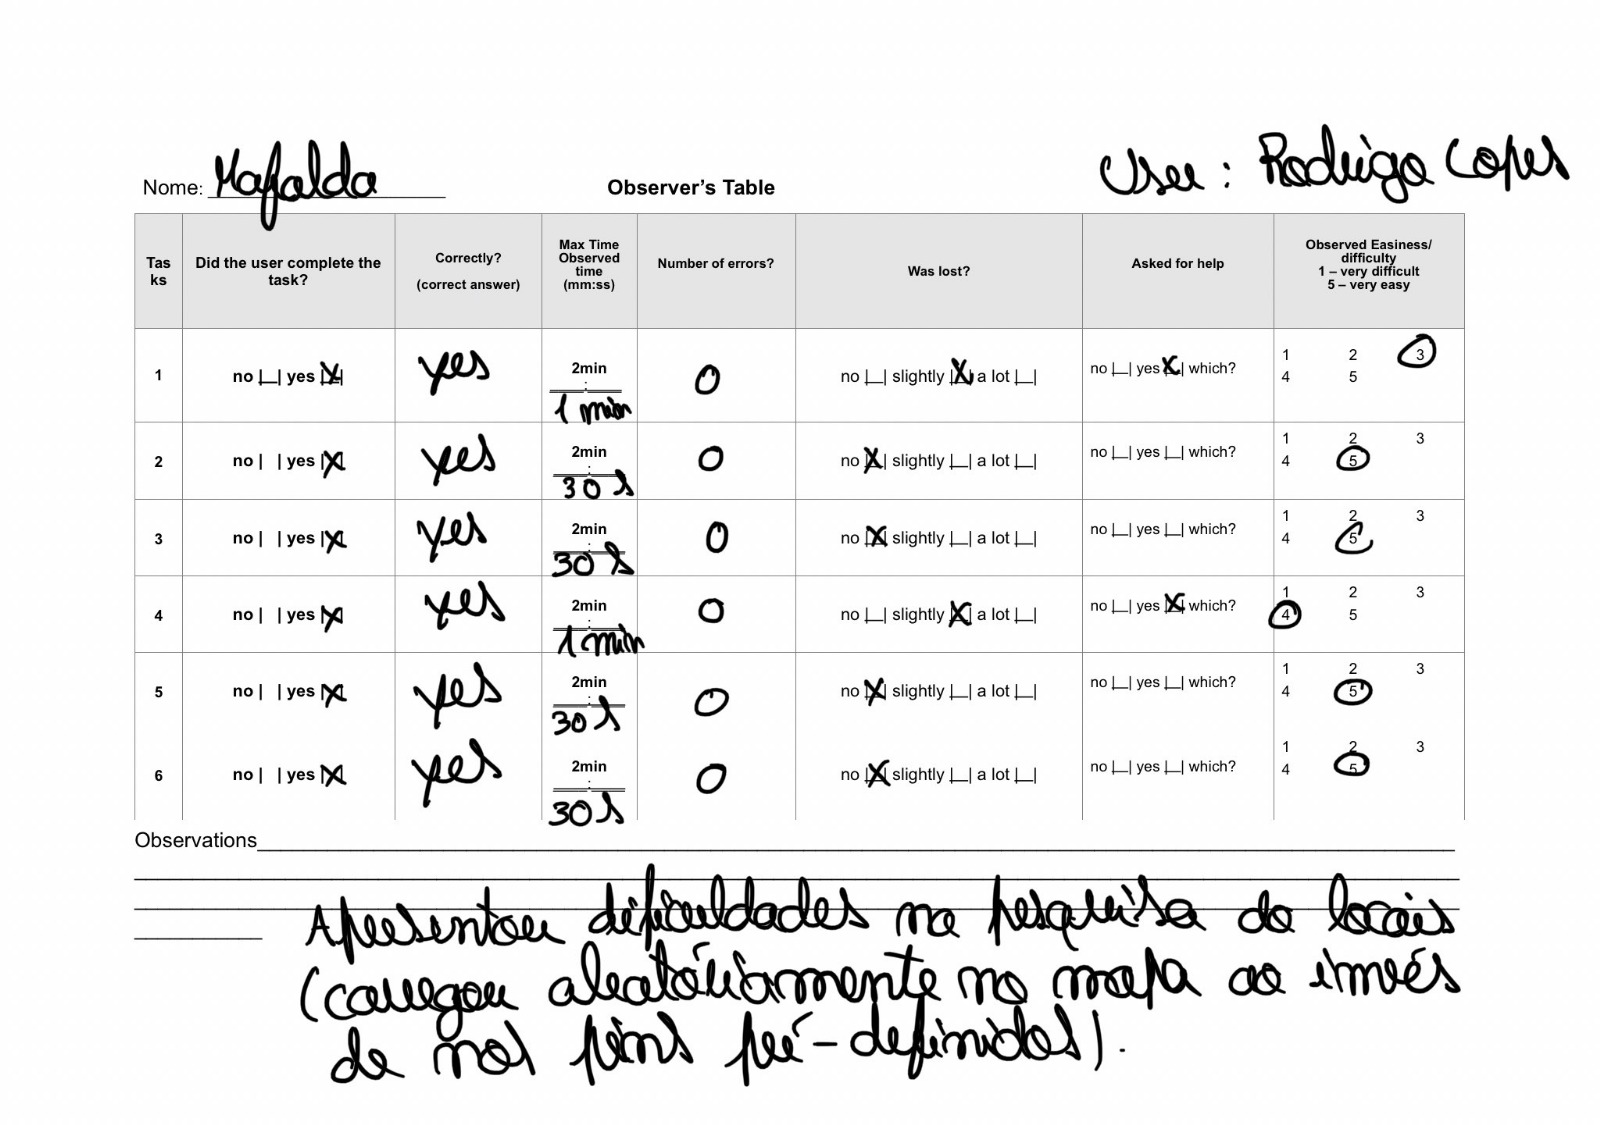 Nome: Mafalda Observer's Table User: Rodrigo Lopes
Tas ks Did the user complete the task? Correctly? (correct answer) Max Time Observed time (mm:ss) Number of errors? Was lost? Asked for help Observed Easiness/ difficulty 1 – very difficult 5 – very easy
1 no |__| yes |X| yes 2min __:__ 1 min 0 no |__| slightly |X| a lot |__| no |__| yes |X| which? 1 2 3 4 5
2 no | | yes |X| yes 2min __:__ 30 s 0 no |X| slightly |__| a lot |__| no |__| yes |__| which? 1 2 3 4 5
3 no | | yes |X| yes 2min __:__ 30 s 0 no |X| slightly |__| a lot |__| no |__| yes |__| which? 1 2 3 4 5
4 no | | yes |X| yes 2min __:__ 1 min 0 no |__| slightly |X| a lot |__| no |__| yes |X| which? 1 2 3 4 5
5 no | | yes |X| yes 2min __:__ 30 s 0 no |X| slightly |__| a lot |__| no |__| yes |__| which? 1 2 3 4 5
6 no | | yes |X| yes 2min __:__ 30 s 0 no |X| slightly |__| a lot |__| no |__| yes |__| which? 1 2 3 4 5
Observations
Apresentou dificuldades na pesquisa do locais
(carregou aleatóriamente no mapa ao invés
de nos pins pré-definidos).